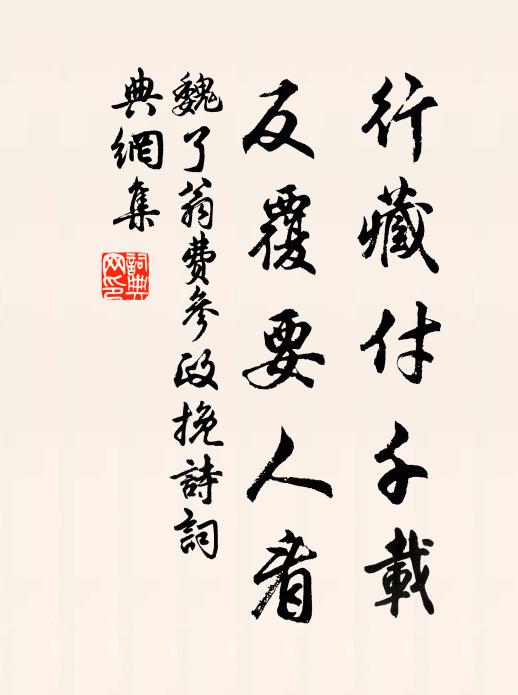 行藏付千載
反覆要人看
魏了翁費參政挽詩詞
典網集
詞典
网印